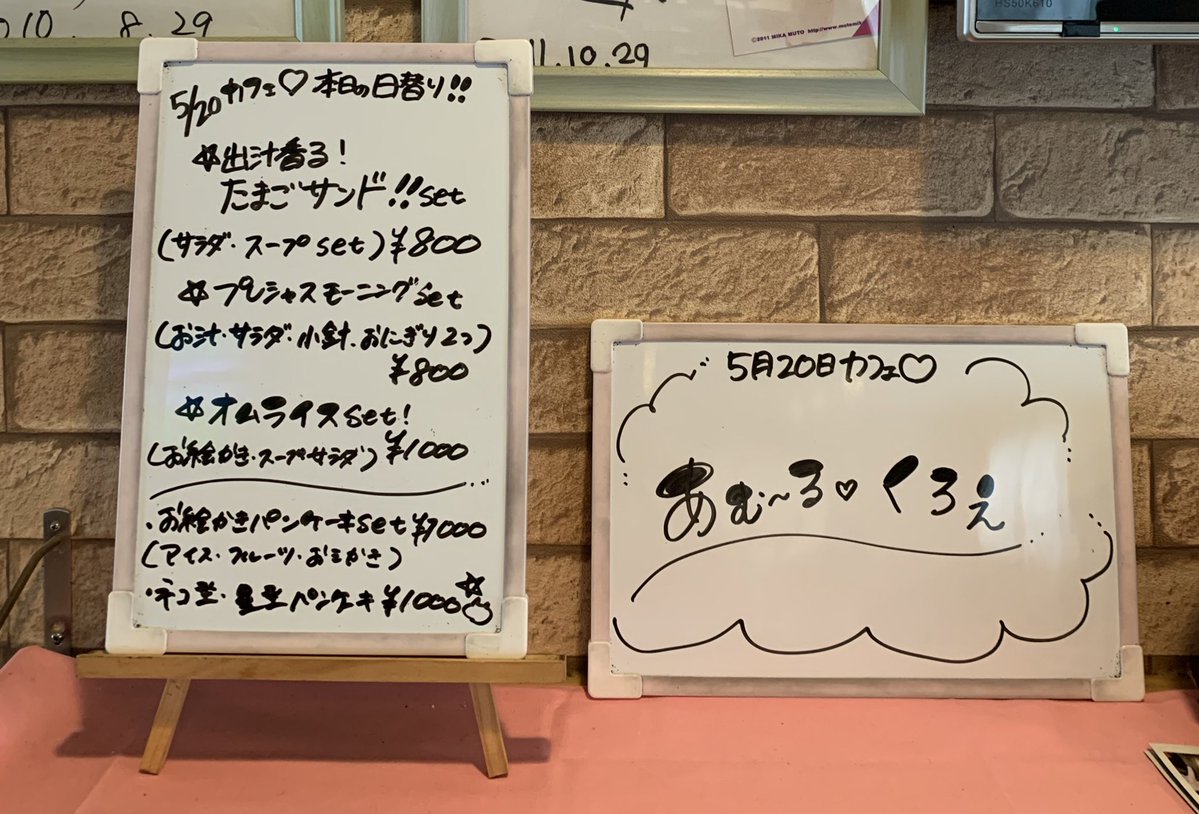 8.29
10.29
©2011 MIKA MUTO
HS50K610
5/20 カフェ♡本日の日替り!!
☆出汁香る!
たまごサンド!!set
(サラダ・スープset)¥800
☆プレシャスモーニングset
(お汁・サラダ・小鉢・おにぎり2つ)
¥800
☆オムライスset!
(お絵かき・スープサラダ)¥1000
・お絵かきパンケーキset¥1000
(アイス・フルーツ・おえかき)
・ネコ型・星型パンケーキ¥1000
5月20日カフェ♡
あむ~る♡くろえ